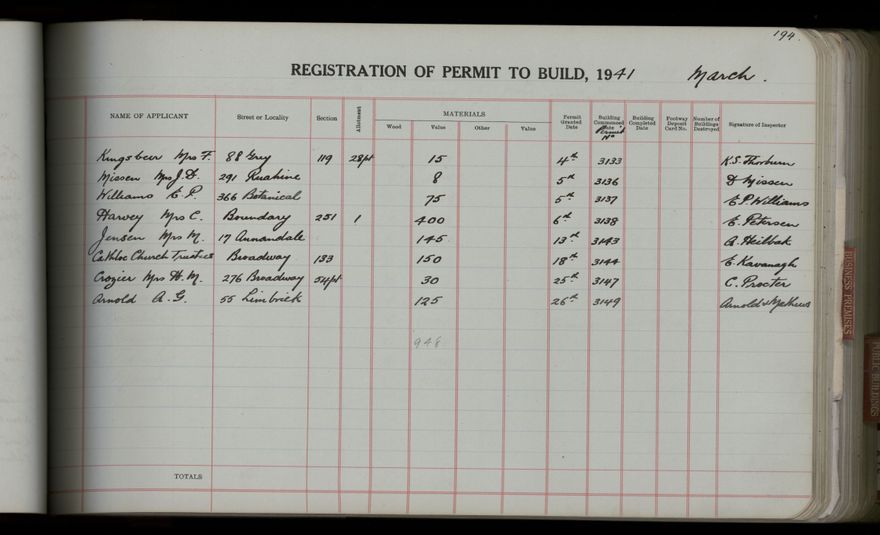 194.
REGISTRATION OF PERMIT TO BUILD, 1941 March.
NAME OF APPLICANT Street or Locality Section Allotment MATERIALS Wood Value Other Value Permit Granted Date Building Commenced Date Permit No Building Completed Date Footway Deposit Card No. Number of Buildings Destroyed Signature of Inspector
Kingsbeer Mrs F. 88 Grey 119 28pt 15 4th 3133 K.S. Thorburn
Missen Mrs J.D. 291 Ruahine 8 5th 3136 D Missen
Williams E.P. 366 Botanical 75 5th 3137 E.P. Williams
Harvey Mrs C. Boundary 251 1 400 6th 3138 E. Petersen
Jensen Mrs M. 17 Annandale 145 13th 3143 A. Heilbak
Catholic Church Trustees Broadway 133 150 18th 3144 E. Kavanagh
Crozier Mrs H.M. 276 Broadway 54pt 30 25th 3147 C. Procter
Arnold A.G. 55 Limbrick 125 26th 3149 Arnold & Mathews
948
TOTALS
BUSINESS PREMISES
PUBLIC BUILDINGS